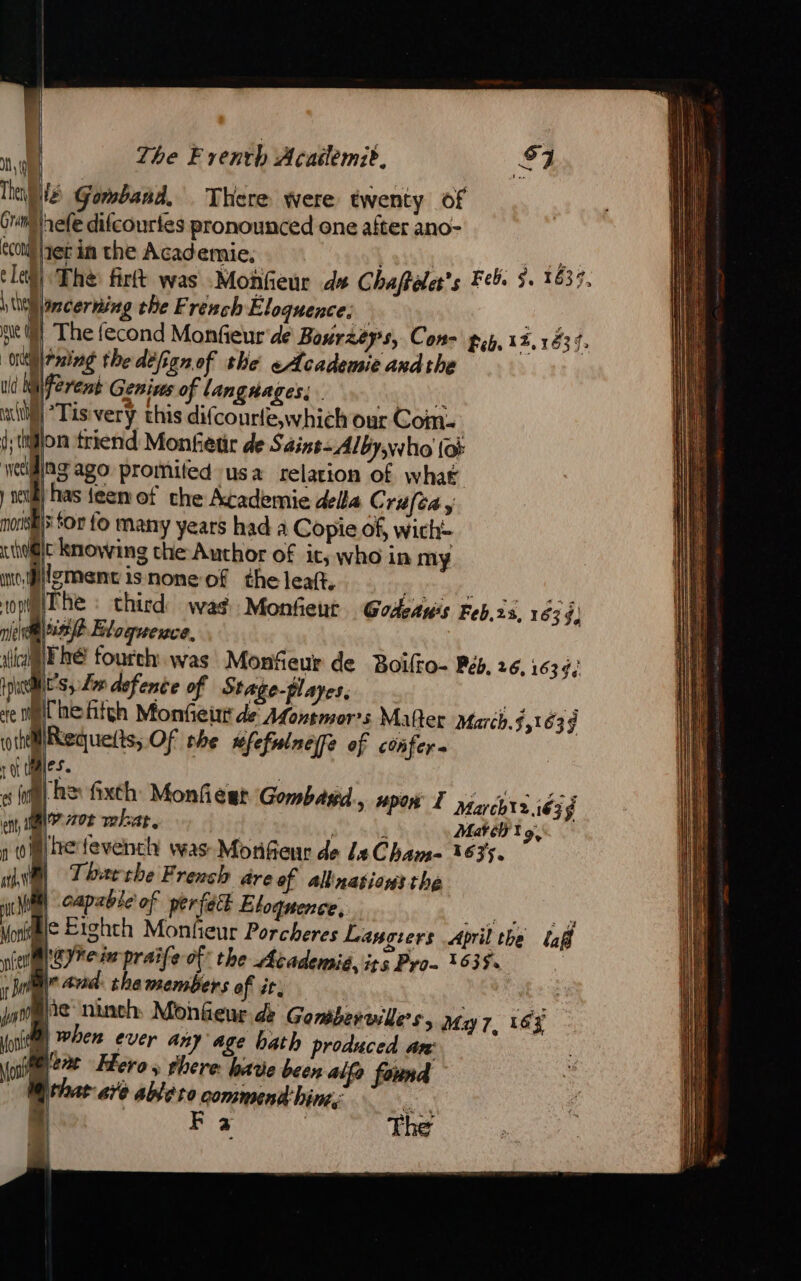 The French Academie. 67
le Gombaud. There were twenty of
these discourses pronounced one after ano-
ther in the Academie.
The first was Monsieur du Chastelet's Feb. 5. 1635.
concerning the French Eloquence.
The second Monsieur de Bourzeys, Con- Feb. 12. 1635.
cerning the design of the Academie and the
different Genius of languages.
'Tis very this discourse, which our Com-
mon friend Monsieur de Saint-Alby, who so
long ago promised us a relation of what
has seen of the Academie della Crusca,
for so many years had a Copie of, with-
out knowing the Author of it, who in my
judgment is none of the least.
The third was Monsieur Godeau's Feb. 22. 1635.
against Eloquence.
The fourth was Monsieur de Boisro- Feb. 26. 1635.
bert's, In defence of Stage-playes.
The fifth Monsieur de Montmor's Master March. 5, 1635
Requests, Of the usefulnesse of confer-
ences.
The sixth Monsieur Gombaud, upon I March 12. 1635
know not what. March 19,
The seventh was Monsieur de la Cham- 1635.
That the French are of all nations the
capable of perfect Eloquence.
The Eighth Monsieur Porcheres Laugiers April the last
in praise of the Academie, its Pro- 1635.
and the members of it.
The ninth Monsieur de Gomberville's, May 7, 163
when ever any age hath produced an
Hero, there have been also found
that are able to commend him.
F 2 The